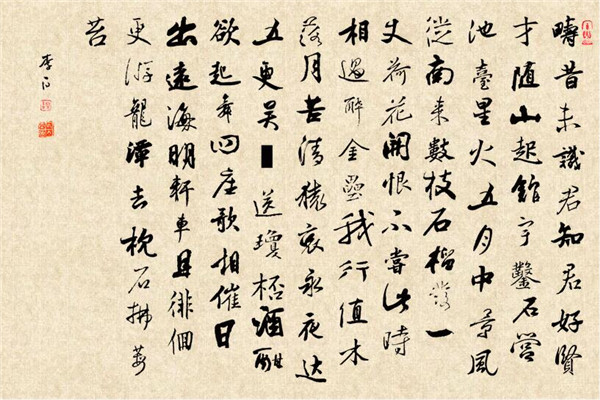 疇昔未識君知君好賢
才随山起館宇鑿石營
池臺星火五月中景風
從南来數枝石榴發一
丈荷花開恨不當此時
相過醉金罍我行值木
落月苦清猿哀永夜达
五更吴■送瓊杯酒酣
欲起舞四座歌相催日
出遠海明軒車且徘徊
更游龍潭去枕石拂莓
苔
李白